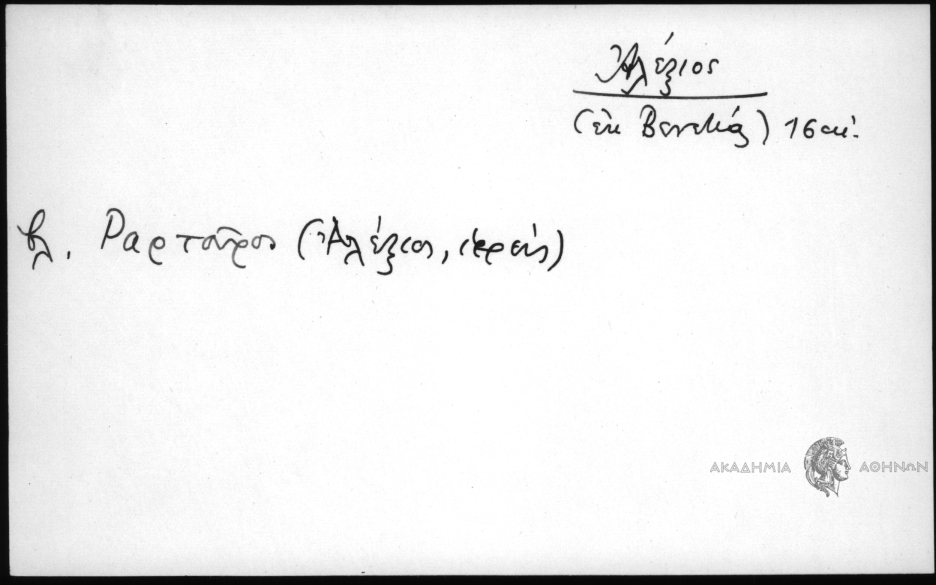 Ἀλέξιος
(ἐκ Βενετιάς) 16 αἰ.
βλ. Ραρτοῦρος (Ἀλέξιος, ἱερεύς)
ΑΚΑΔΗΜΙΑ ΑΘΗΝΩΝ